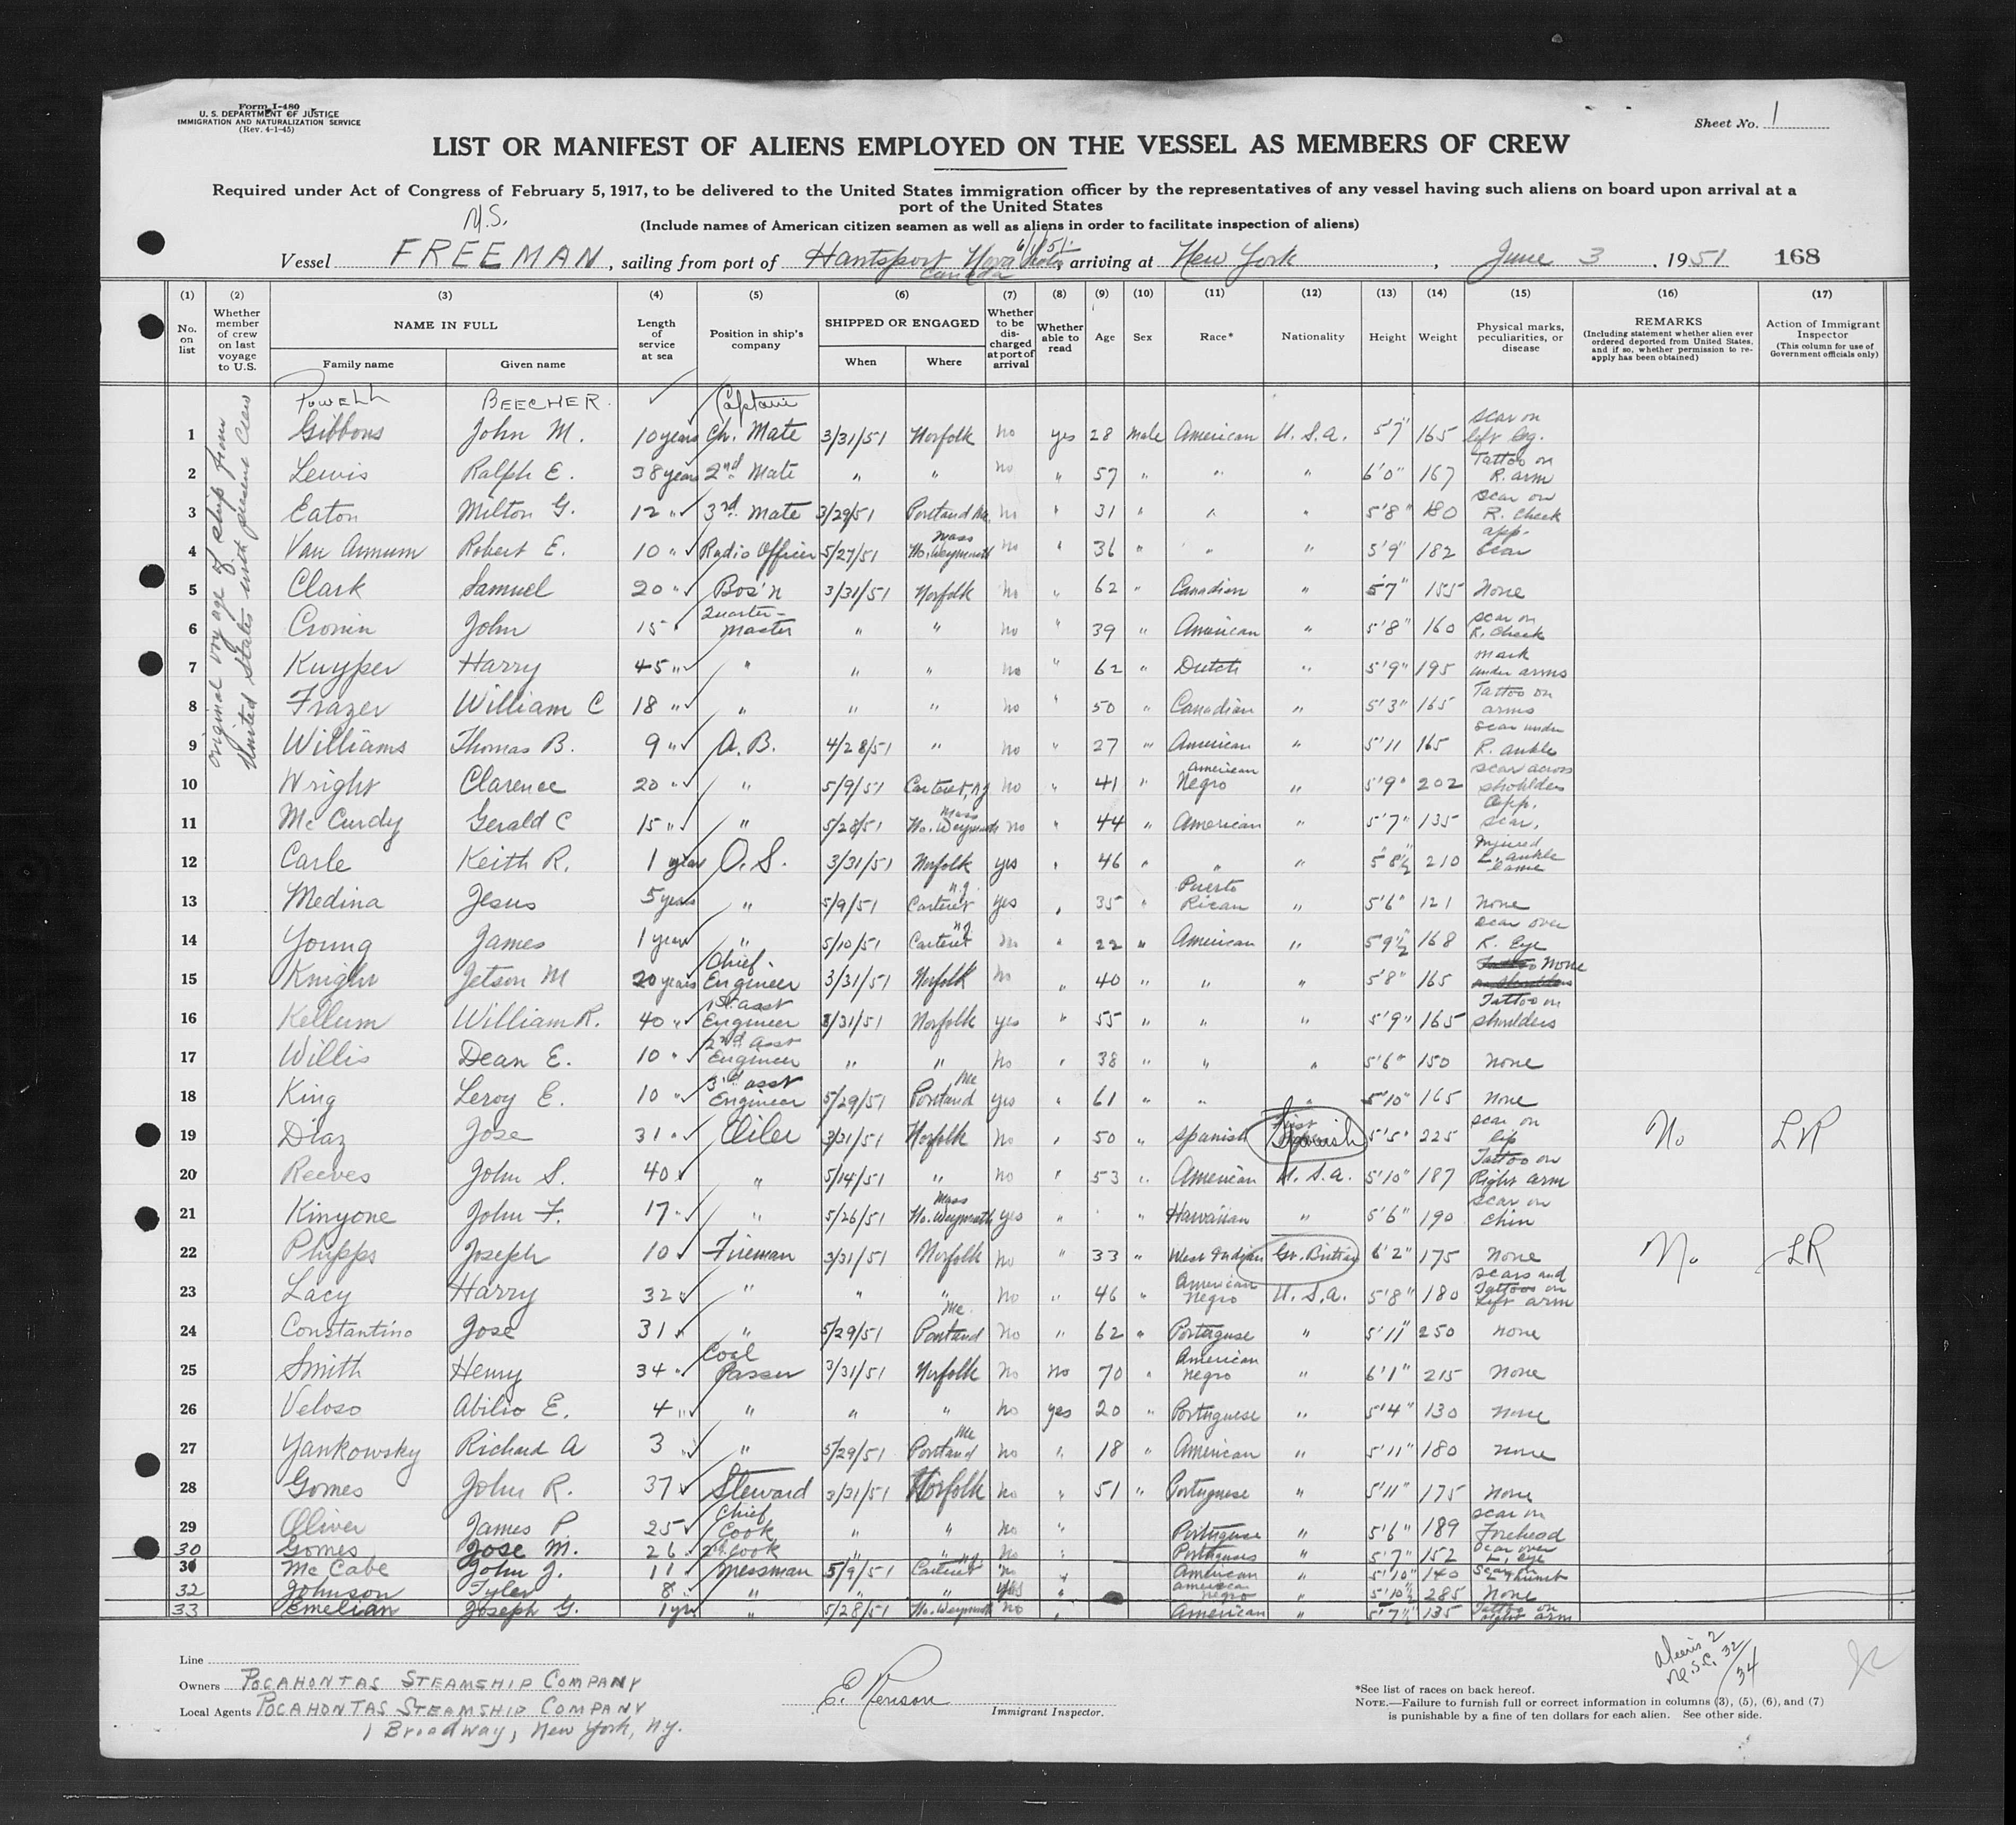 Form I-480
U. S. DEPARTMENT OF JUSTICE
IMMIGRATION AND NATURALIZATION SERVICE
(Rev. 4-1-45)
Sheet No. 1
LIST OR MANIFEST OF ALIENS EMPLOYED ON THE VESSEL AS MEMBERS OF CREW
Required under Act of Congress of February 5, 1917, to be delivered to the United States immigration officer by the representatives of any vessel having such aliens on board upon arrival at a
port of the United States
(Include names of American citizen seamen as well as aliens in order to facilitate inspection of aliens)
Vessel FREEMAN, sailing from port of Hantsport Nova Scotia Canada, arriving at New York, June 3, 1951 168
(1) (2) (3) (4) (5) (6) (7) (8) (9) (10) (11) (12) (13) (14) (15) (16) (17)
No. on list
Whether member of crew on last voyage to U.S.
NAME IN FULL
Family name
Given name
Length of service at sea
Position in ship's company
SHIPPED OR ENGAGED
When
Where
Whether to be discharged at port of arrival
Whether able to read
Age
Sex
Race*
Nationality
Height
Weight
Physical marks, peculiarities, or disease
REMARKS
(Including statement whether alien ever ordered deported from United States, and if so, whether permission to reapply has been obtained)
Action of Immigrant Inspector
(This column for use of Government officials only)
original voyage of ship from
United States with present crew
POWELL BEECHER Captain
1 Gibbons John M. 10 years Ch. Mate 3/31/51 Norfolk no yes 28 Male American U.S.A. 5'7" 165 scar on left leg.
2 Lewis Ralph E. 38 years 2nd Mate " " no " 57 " " " 6'0" 167 Tattoo on R. arm
3 Eaton Milton G. 12 " 3rd Mate 3/29/51 Portland Me. no " 31 " " " 5'8" 180 scar on R. cheek
4 Van Annum Robert E. 10 " Radio Officer 5/27/51 No. Weymouth Mass no " 36 " " " 5'9" 182 app. scar
5 Clark Samuel 20 " Bos'n 3/31/51 Norfolk no " 62 " Canadian " 5'7" 155 None
6 Cronin John 15 " Quarter-master " " no " 39 " American " 5'8" 160 scar on R. cheek
7 Kuyper Harry 45 " " " " no " 62 " Dutch " 5'9" 195 mark under arms
8 Frazer William C 18 " " " " no " 50 " Canadian " 5'3" 165 Tattoo on arms
9 Williams Thomas B. 9 " A.B. 4/28/51 " no " 27 " American " 5'11 165 scar under R. ankle
10 Wright Clarence 20 " " 5/9/51 Carteret, NJ no " 41 " American Negro " 5'9" 202 scar across shoulders
11 McCurdy Gerald C 15 " " 5/28/51 No. Weymouth Mass no " 44 " American " 5'7" 135 app. scar.
12 Carle Keith R. 1 year O.S. 3/31/51 Norfolk yes " 46 " " " 5'8½ 210 Injured L. ankle lame
13 Medina Jesus 5 years " 5/9/51 Carteret N.J. yes " 35 " Puerto Rican " 5'6" 121 none
14 Young James 1 year " 5/10/51 Carteret NJ no " 22 " American " 5'9½ 168 scar over R. Eye
15 Knight Jetson M 20 years Chief Engineer 3/31/51 Norfolk no " 40 " " " 5'8" 165 None
16 Kellum William R. 40 " 1st asst Engineer 3/31/51 Norfolk yes " 55 " " " 5'9" 165 Tattoo on shoulders
17 Willis Dean E. 10 " 2nd asst Engineer " " no " 38 " " " 5'6" 150 none
18 King Leroy E. 10 " 3rd asst Engineer 5/29/51 Portland Me yes " 61 " " " 5'10" 165 none
19 Diaz Jose 31 " Oiler 3/31/51 Norfolk no " 50 " Spanish Spanish 5'5" 225 scar on lip No LR
20 Reeves John S. 40 " 5/14/51 " no " 53 " American U.S.A. 5'10" 187 Tattoo on Right arm
21 Kinyone John F. 17 " " 5/26/51 No. Weymouth Mass yes " " Hawaiian " 5'6" 190 scar on chin
22 Phipps Joseph 10 Fireman 3/31/51 Norfolk no " 33 " West Indian Gr. Britain 6'2" 175 none No LR
23 Lacy Harry 32 " " " " no " 46 " American Negro U.S.A. 5'8" 180 scars and Tattoos on left arm
24 Constantino Jose 31 " 5/29/51 Portland Me no " 62 " Portuguse " 5'11" 250 none
25 Smith Henry 34 " Coal Passer 3/31/51 Norfolk no no 70 " American negro " 6'1" 215 none
26 Veloso Abilio E. 4 " " " " no yes 20 " Portuguese " 5'4" 130 none
27 Yankowsky Richard A 3 " " 5/29/51 Portland Me no " 18 " American " 5'11" 180 none
28 Gomes John R. 37 Steward 3/31/51 Norfolk no " 51 " Portuguese " 5'11" 175 none
29 Oliver James P. 25 Chief Cook " " no " Portuguse " 5'6" 189 scar on Forehead
30 Gomes Jose M. 26 2nd cook " " no " Portuguse " 5'7" 152 scar over L. eye
31 McCabe John J. 11 messman 5/9/51 Carteret NJ no " American " 5'10" 140 scar on L thumb
32 Johnson Tyler 8 " " " yes " american negro " 5'10½ 285 None
33 Emelian Joseph G. 1 yr " 5/28/51 No. Weymouth no " American " 5'7½" 135 Tattoo on right arm
Line
Owners POCAHONTAS STEAMSHIP COMPANY
Local Agents POCAHONTAS STEAMSHIP COMPANY
1 Broadway, New York, NY.
Immigrant Inspector.
*See list of races on back hereof.
NOTE.—Failure to furnish full or correct information in columns (3), (5), (6), and (7)
is punishable by a fine of ten dollars for each alien. See other side.
Aliens 2
U.S.C. 32
34